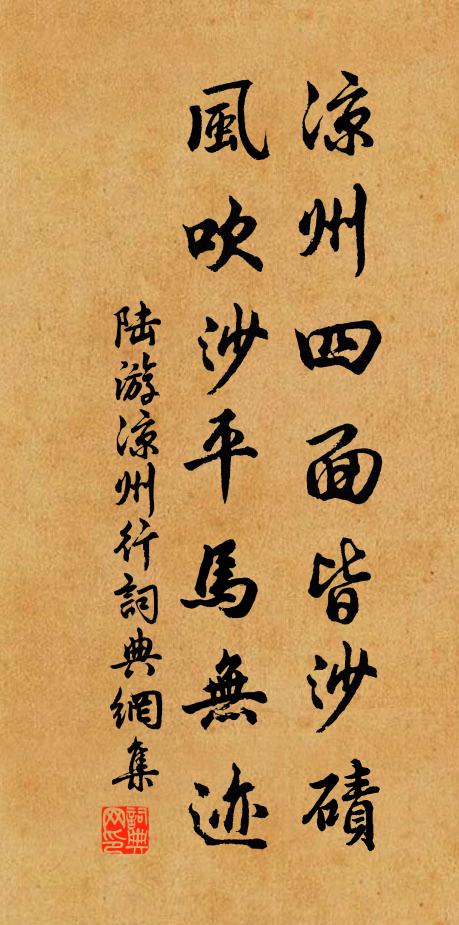 涼州四面皆沙磧
風吹沙平馬無迹
陸游涼州行詞典網集
詞典网印